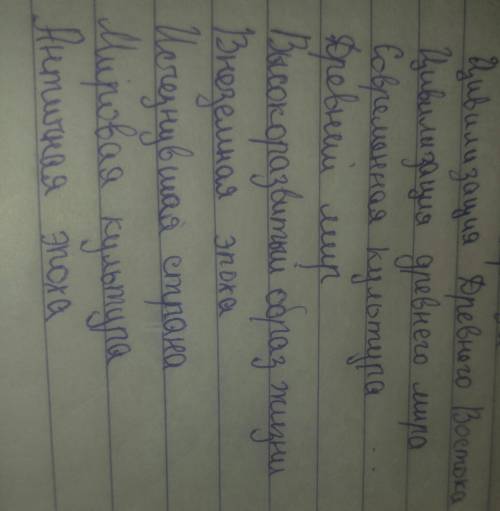 Цивилизация Древнего Востока
Цивилизация древнего мира
Современная культура
Древний мир
Высокоразвитый образ жизни
Внеземная эпоха
Исчезнувшая страна
Мировая культура
Античная эпоха